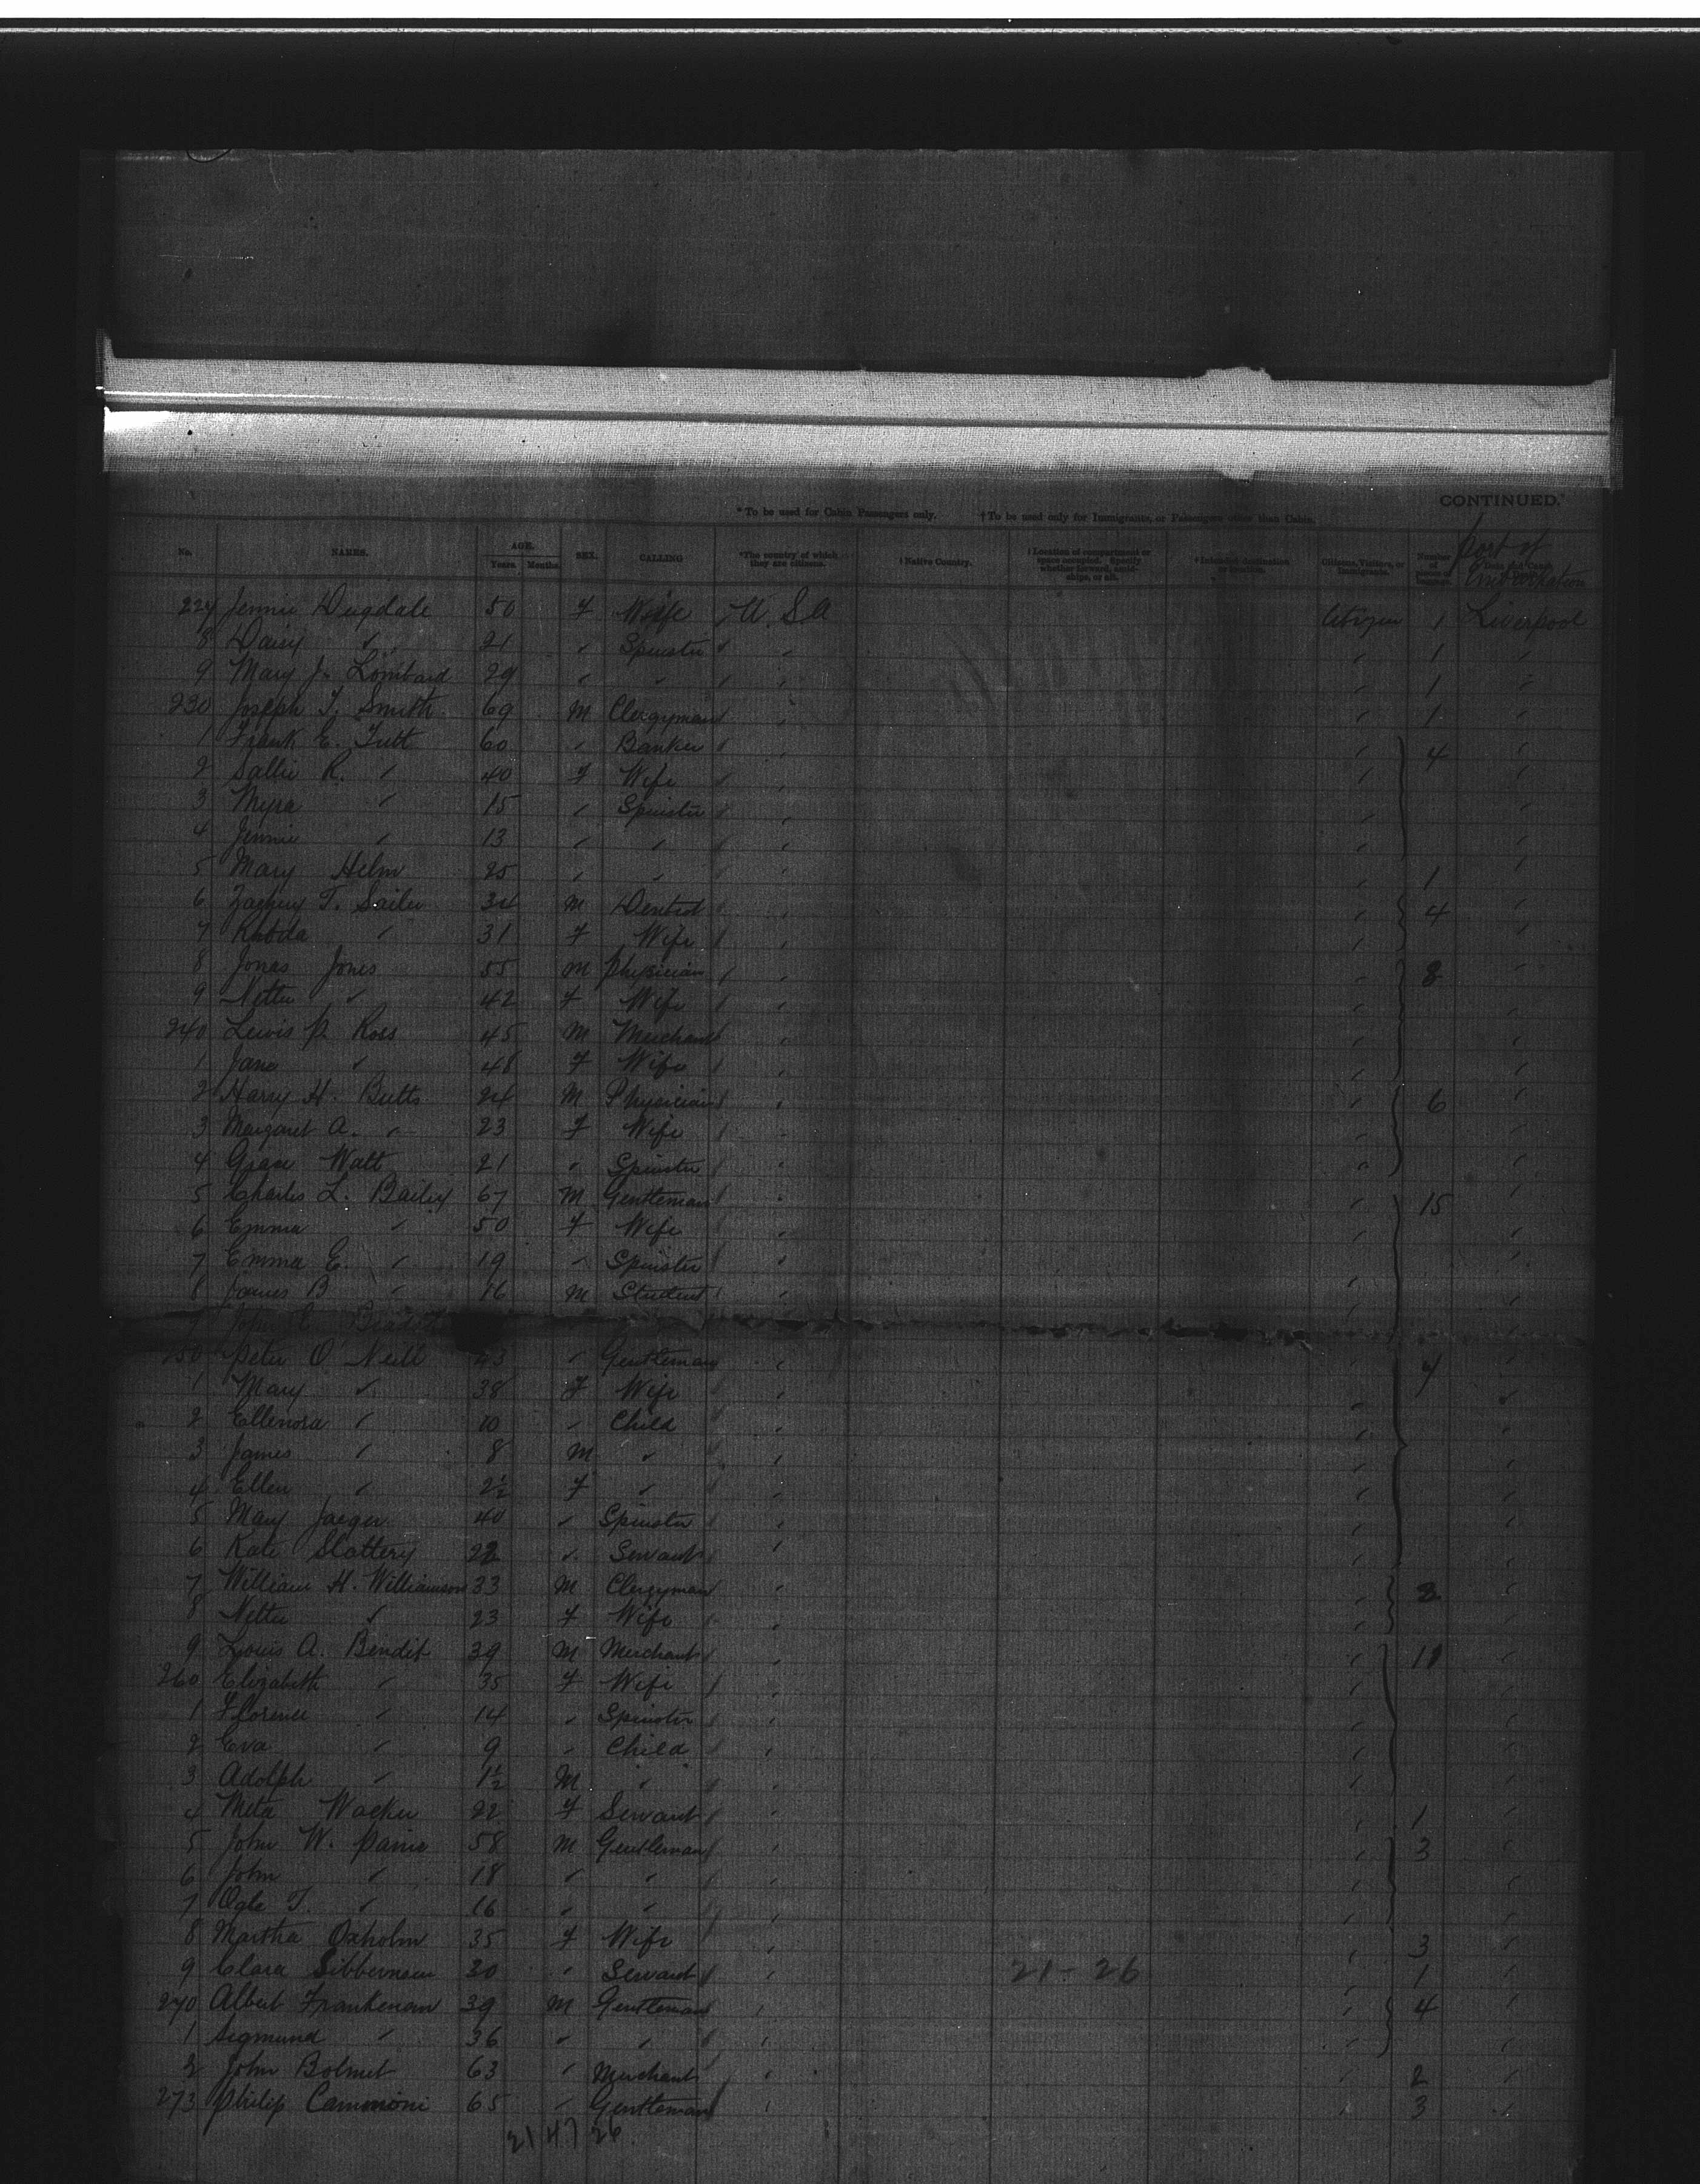 CONTINUED.
* To be used for Cabin Passengers only. † To be used only for Immigrants, or Passengers other than Cabin.
No. NAMES. AGE. Years. Months. SEX. CALLING *The country of which they are citizens. † Native Country. † Location of compartment or space occupied. Specify whether forward, amidships, or aft. Citizens, Visitors, or Immigrants. Number of Port of Embarkation
227 Jennie Dugdale 50 F Wife U.S.A Citizen 1 Liverpool
8 Daisy " 21 " Spinster " " " 1 "
9 Mary J. Lombard 29 " " " " " 1 "
230 Joseph T. Smith 69 M Clergyman " " 1 "
1 Frank E. Tutt 60 " Banker " " 4 "
2 Sallie R. " 40 F Wife " " "
3 Myra " 15 " Spinster " " "
4 Jennie " 13 " " " " "
5 Mary Helm 25 " " " " 1 "
6 Zachery T. Sailer 34 M Dentist " " 4 "
7 Rhoda " 31 F Wife " " "
8 Jonas Jones 55 M Physician " " 8 "
9 Nettie " 42 F Wife " " "
240 Lewis P. Ross 45 M Merchant " " "
1 Jane " 48 F Wife " " "
2 Harry H. Butts 24 M Physician " " 6 "
3 Margaret A. " 23 F Wife " " "
4 Grace Watt 21 " Spinster " " "
5 Charles L. Bailey 67 M Gentleman " " 15 "
6 Emma " 50 F Wife " " "
7 Emma E. " 19 " Spinster " " "
8 James B " 16 M Student " " "
9 John
250 Peter O'Neill 43 " Gentleman " " 4 "
1 Mary " 38 F Wife " " "
2 Ellenora " 10 " Child " " "
3 James " 8 M " " " "
4 Ellen " 2½ F " " " "
5 Mary Jaeger 40 " Spinster " " "
6 Kate Slattery 22 " Servant " " "
7 William H. Williamson 33 M Clergyman " " "
8 Nettie " 23 F Wife " " "
9 Louis A. Bendit 39 M Merchant " " 11 "
260 Elizabeth " 35 F Wife " " "
1 Florence " 14 " Spinster " " "
2 Eva " 9 " Child " " "
3 Adolph " 1½ M " " " "
4 Meta Wacker 22 F Servant " " 1 "
5 John W. Paine 58 M Gentleman " " 3 "
6 John " 18 " " " " "
7 Ogle T. " 16 " " " " "
8 Martha Oxholm 35 F Wife " " 3 "
9 Clara Sibbernsen 30 " Servant " 21-26 " 1 "
270 Albert Frankenau 39 M Gentleman " " 4 "
1 Sigmund " 36 " " " " "
2 John Bolmet 63 " Merchant " " 2 "
273 Philip Cammoni 65 " Gentleman " " 3 "
21 47 26